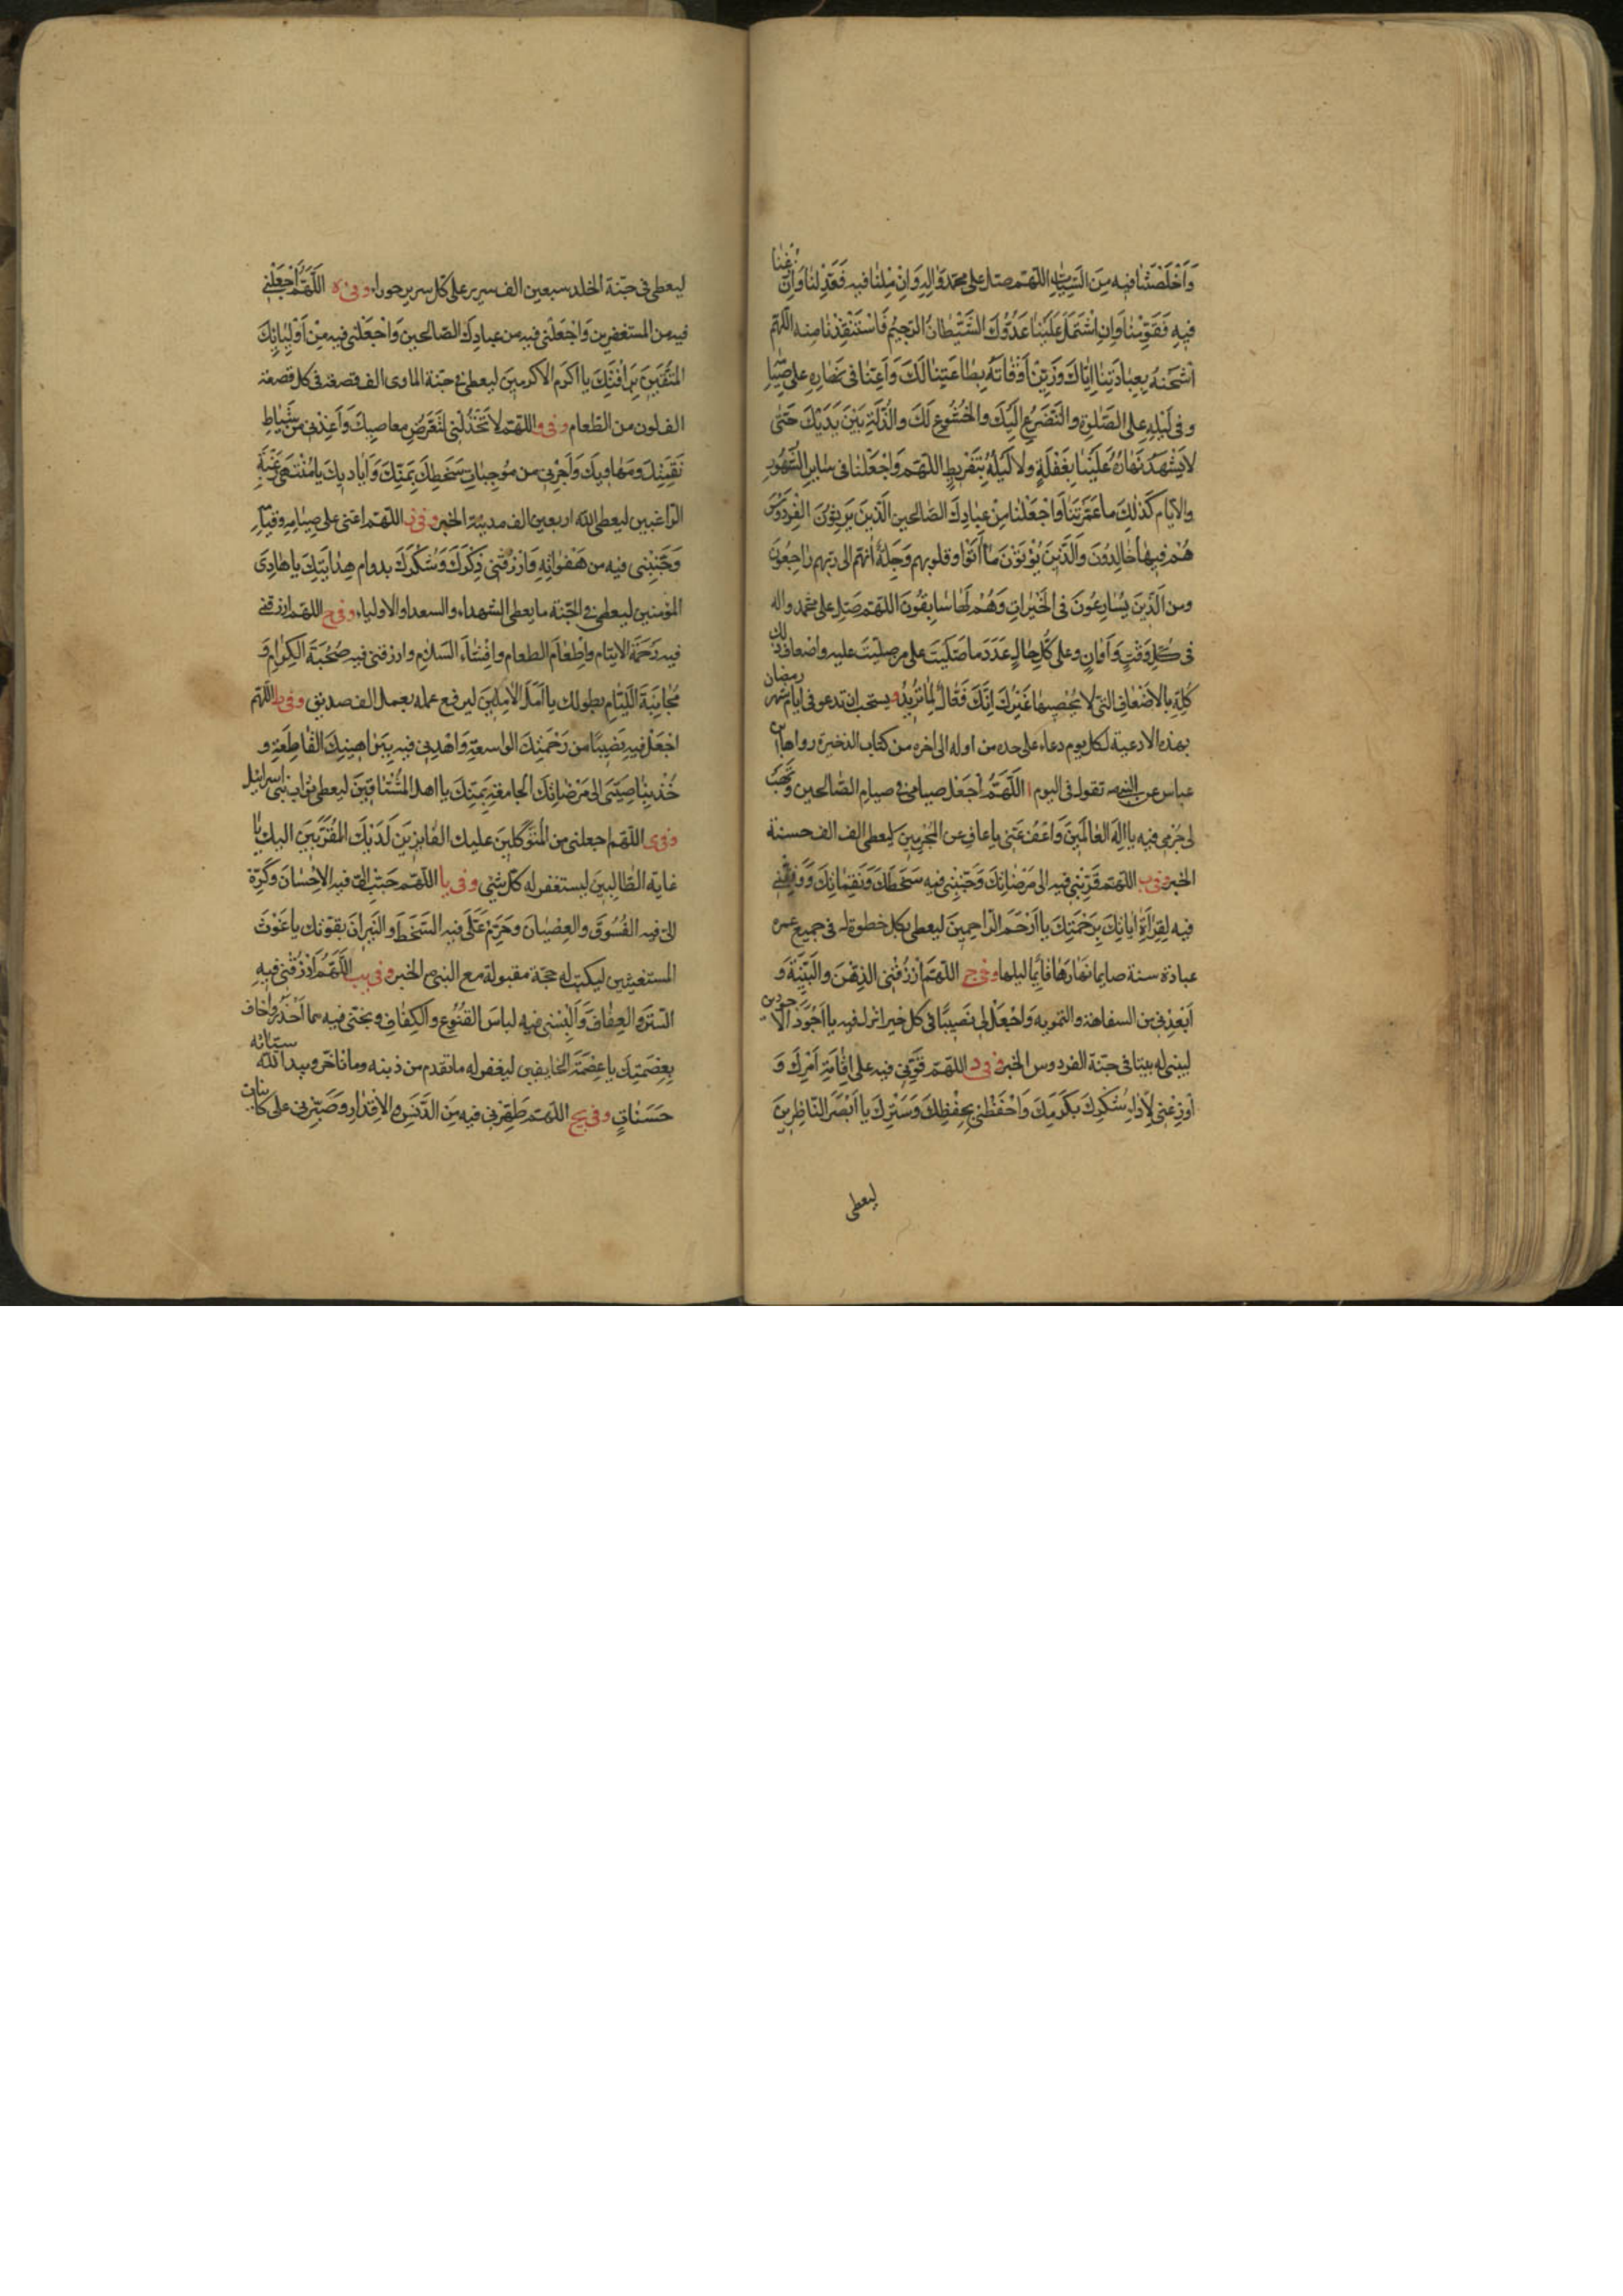 وَاَخْلَصْتَنا فيه مِنَ السَيِّئاتِ اللّهم صل على محمد وَالِه وَاِنْ مِلْنا فيه فَعَدِّلْنا وَاِنْ زُغْنا
فيهِ فَقَوِّمْنا وَاِنِ اشْتَمَلَ عَلَيْنا عَدُوُّكَ الشَّيْطانُ الرَّجيمُ فَاسْتَنْقِذْنا مِنه اللّهم
اشْحَنْهُ بِعِبادَتِنا اِيّاكَ وَزَيِّنْ اَوْقاتَهُ بِطاعَتِنا لَكَ وَاَعِنّا فى نَهارِهِ على صِيامِهِ
وفى لَيْلِهِ على الصَّلوةِ والتَضَرُّعِ اِلَيْكَ والخُشُوعِ لَكَ والذِّلَّةِ بَيْنَ يَدَيْكَ حَتّى
لا يَشْهَدَ نَهارُهُ عَلَيْنا بِغَفْلَةٍ ولا لَيْلُهُ بِتَفْريطٍ اللّهم وَاجْعَلْنا فى سايرِ الشُّهُورِ
والايّامِ كَذلِكَ ما عَمَّرْتَنا وَاجْعَلْنا مِنْ عِبادِكَ الصّالحين الَّذينَ يَرِثُونَ الْفِرْدَوْسَ
هُمْ فيها خالِدُونَ وَالَّذينَ يُؤْتُوْنَ ما اَتَوْا وقلوبهم وَجِلَةٌ انّهم الى ربّهم راجِعُونَ
ومن الَّذينَ يُسارِعُونَ فى الْخَيْراتِ وَهُمْ لَها سابِقُونَ اللّهم صَلِّ على محمد واله
فى كُلِّ وَقْتٍ وَاَوانٍ وعلى كُلِّ حالٍ عَدَدَ ما صَلَّيْتَ على من صلّيتَ عليه واضعاف ذلك
كُلِّهِ بالاَضْعافِ التى لا يُحْصيها غَيْرُكَ اِنَّكَ فَعّالٌ لِما تُريدُ ويستحب ان تدعو فى ايام شهر رمضان
بهذه الادعية لكل يوم دعاء على حده من اوله الى اخره من كتاب الذخيرة رواها ابن
عباس عن النبى تقول فى اليوم ا اللّهُمَّ اجْعَلْ صيامى فى صيامِ الصّائمين وَهَبْ
لى جُرمى فيه يا اِلهَ العالَمينَ وَاعْفُ عَنّى يا عافى عن المُجْرِمينَ لِيعطى الف الف حسنة
الخبر وفى ب اللّهم قَرِّبْنى فيه الى مَرْضاتِكَ وَجَنِّبْنى فيه سَخَطَكَ وَنَقِماتِكَ وَوَفِّقْنى
فيه لِقِراءَةِ اياتِكَ بِرَحْمَتِكَ يا اَرْحَمَ الرّاحِمينَ ليعطى بكل خطوة له فى جميع عمره
عبادة سنة صايما نَهارَها قائِما ليلها وفى ج اللّهم ارْزُقْنى الذِهْنَ والتَنْبيه وَ
اَبْعِدْنى من السفاهة والتمويه وَاجْعَلْ لى نَصيبًا فى كل خير انزل فيه يا اَجْوَدَ الاجودين
ليبنى له بيتا فى جنّة الفردوس الخبر وفى د اللّهم قَوِّنى فيه على اِقامَةِ اَمْرِكَ وَ
اَوْزِعْنى لِاَداءِ شُكْرِكَ بكَرَمِكَ وَاحْفَظْنى بِحِفْظِكَ وَسَتْرِكَ يا اَبْصَرَ النّاظِرينَ
ليعطى
ليعطى فى جنّة الخلد سبعين الف سرير على كل سرير حوراء وفى ه اللّهُمَّ اجْعَلْنى
فيه من المستغفِرين وَاجْعَلْنى فيه من عبادِكَ الصّالحين وَاجْعَلْنى فيه مِنْ اَوْلِيائِكَ
المُتَّقينَ بِرَافَتِكَ يا اكرَمَ الاكرمينَ ليعطى فى جنّة الماوى الف قصعة فى كل قصعة
الف لون من الطعام وفى و اللّهم لا تَخْذُلْنى لِتَعَرُّضِ معاصيكَ وَاَعِذْنى من سِياطِ
نَقِمَتِكَ ومَهاويكَ وَاَجِرْنى من مُوجِباتِ سَخَطِكَ بِمَنِّكَ وَاَياديكَ يا مُنْتَهى رَغْبَةِ
الرّاغبين ليعطى الله اربعين الف مدينة الخبر وفى ز اللّهم اعنّى على صِيامِهِ وقيامِهِ
وَجَنِّبْنى فيه من هَفَواتِهِ وَارْزُقْنى ذِكْرَكَ وَشُكْرَكَ بدوام هِدايَتِكَ يا هادِىَ
المؤمنين ليعطى فى الجنّة ما يعطى الشهداء والسعدا والاولياء وفى ح اللّهم ارزقنى
فيه رَحْمَةَ الايتام واِطْعامَ الطعام وافْشاءَ السَلامِ وارزقنى فيه صُحْبَةَ الكِرامِ وَ
مُجانَبَةَ اللِّئامِ بطولك يا اَمَلَ الامِلينَ ليرفع عمله بعمل الف صديق وفى ط اللّهم
اجْعَلْ لى فيه نَصيبًا من رَحْمَتِكَ الواسعةِ وَاهْدِنى فيه بِبَراهينِكَ القاطِعَةِ و
خُذْ بِناصِيَتى الى مَرْضاتِكَ الجامعَةِ بِمَنِّكَ يا امل المُشْتاقينَ ليعطى ثواب بنى اسرائيل
وفى ى اللّهم اجعلنى من المُتَوَكِّلينَ عليك الفايِزينَ لَدَيْكَ المُقَرَّبينَ اليك يا
غاية الطّالِبينَ ليستغفر له كل شئ وفى يا اللّهم حَبِّبْ الىّ فيه الاِحْسانَ وكَرِّهْ
الىّ فيه الفُسُوقَ والعِصْيانَ وحَرِّمْ عَلَىَّ فيه السَخَطَ والنيرانَ بقوّتك يا غَوْثَ
المستغيثين ليكتب له حجّة مقبولة مع النبى الخبر وفى يب اللّهُمَّ ارْزُقْنى فيهِ
السَّتْرَ والعِفافَ وَاَلْبِسْنى فيه لباسَ القُنُوعِ والكِفافِ ونجّنى فيه مما اَحْذَرُ واخاف
بِعِصْمَتِكَ يا عِصْمَةَ الخايفين ليغفر له ما تقدم من ذنبه وما تاخّر ويبدل الله سيئاته
حَسَناتٍ وفى يج اللّهم طَهِّرْنى فيه مِنَ الدَّنَسِ والاَقْذارِ وصَبِّرْنى على كاينات